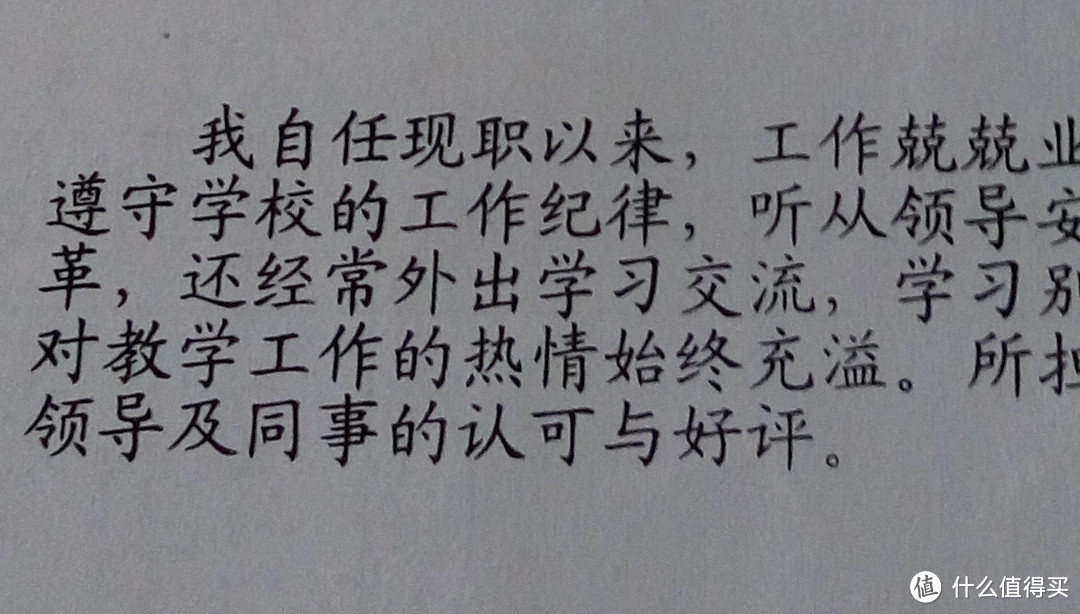 我自任现职以来，工作兢兢业
遵守学校的工作纪律，听从领导安
革，还经常外出学习交流，学习别
对教学工作的热情始终充溢。所担
领导及同事的认可与好评。
值 什么值得买